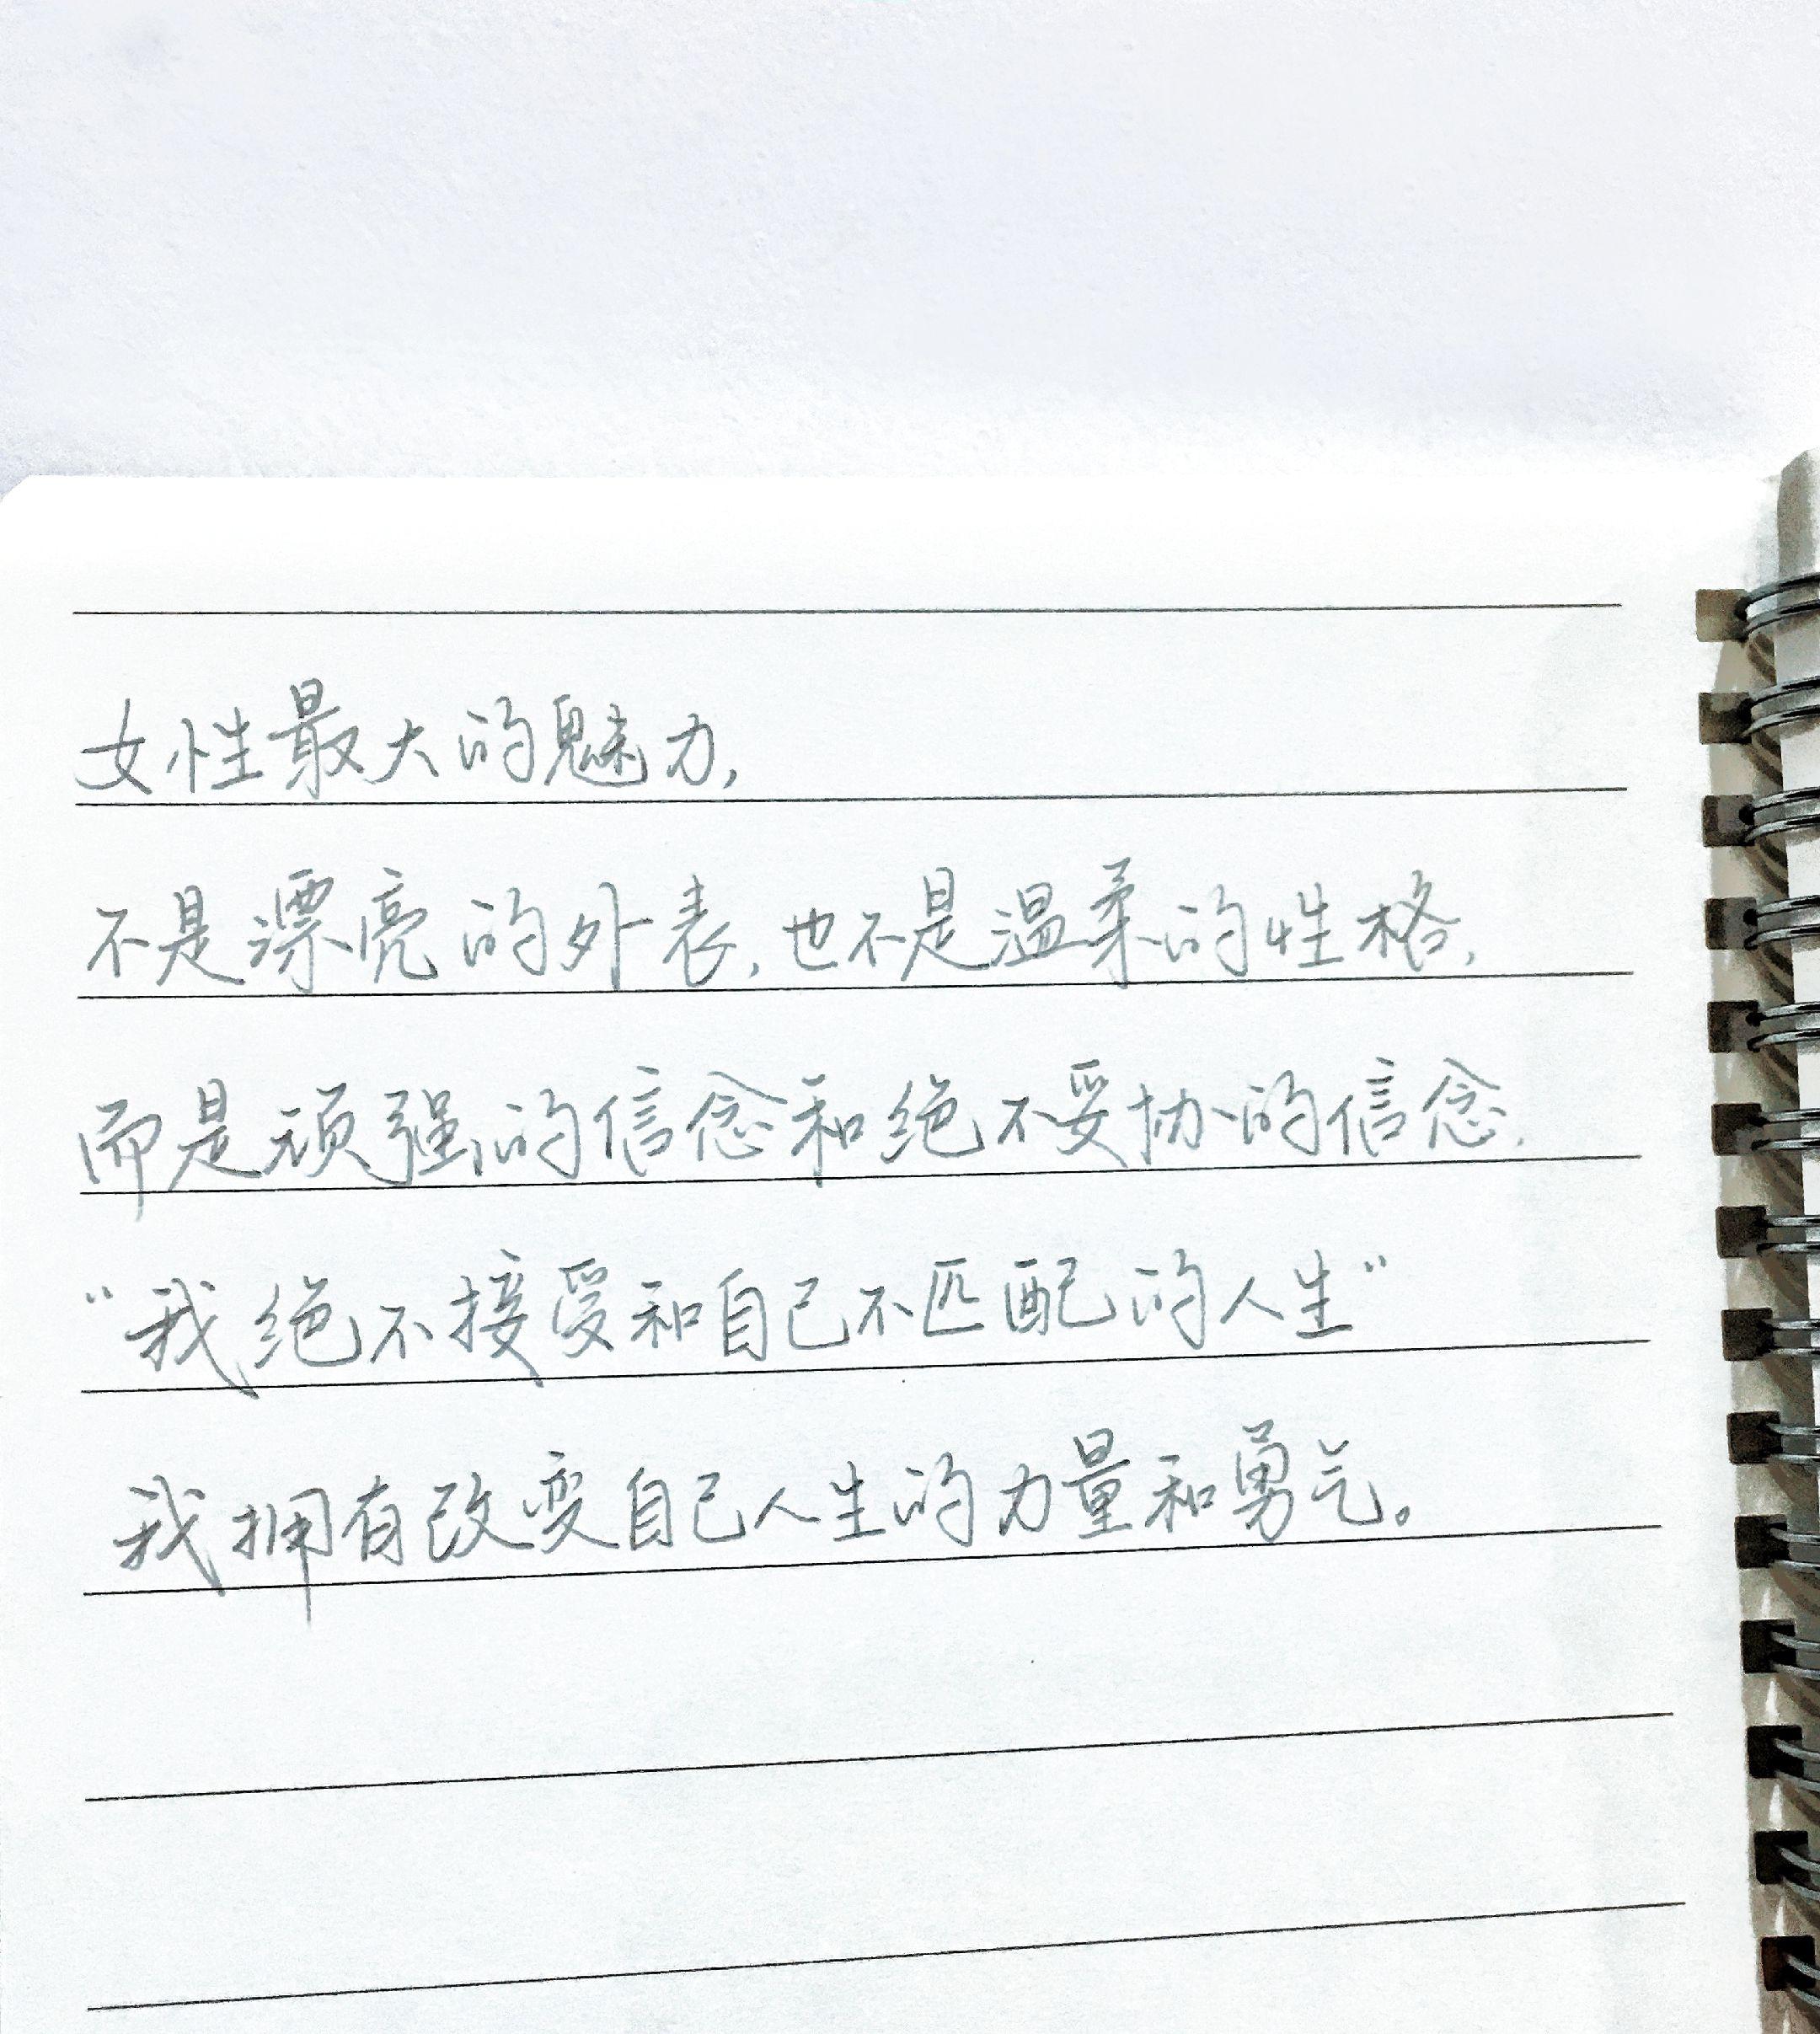 女性最大的魅力,
不是漂亮的外表,也不是温柔的性格,
而是顽强的信念和绝不妥协的信念.
“我绝不接受和自己不匹配的人生”
我拥有改变自己人生的力量和勇气。